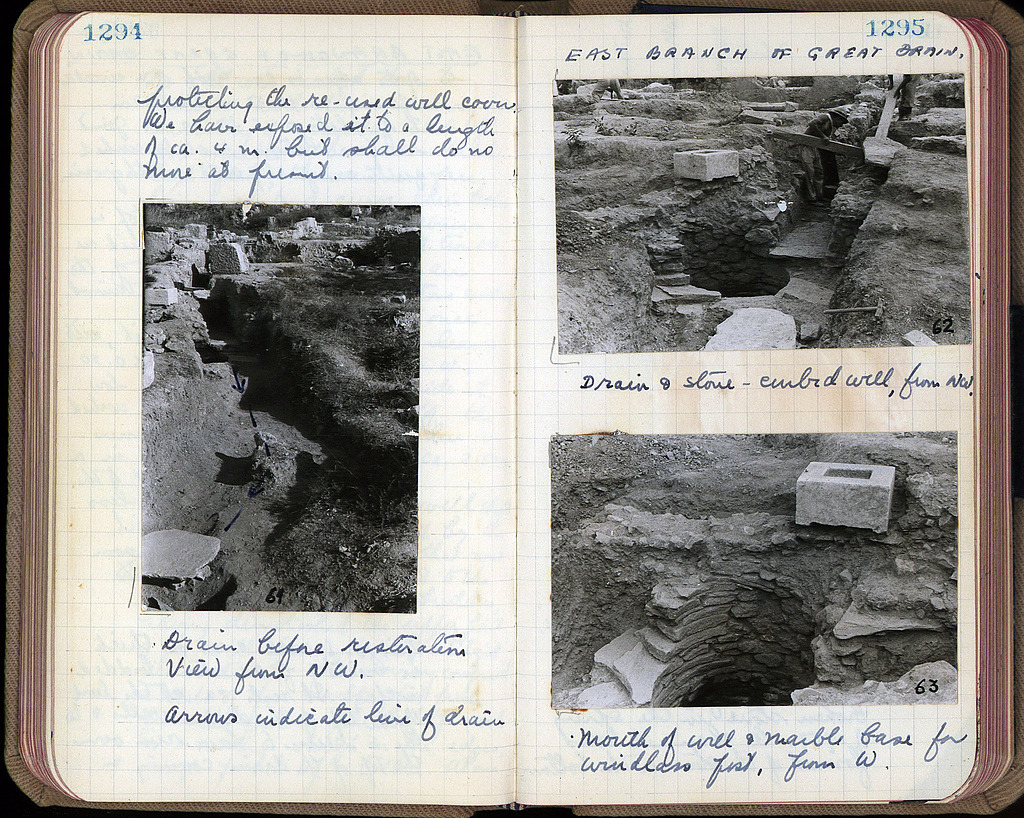 1294
protecting the re-used well cover.
We have exposed it to a length
of ca. 4 m. but shall do no
more at present.
61
Drain before restoration
View from NW.
Arrows indicate line of drain
1295
EAST BRANCH OF GREAT DRAIN.
62
Drain & stone-curbed well, from NW.
63
Mouth of well & marble base for
windlass post, from W.